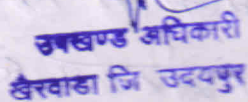 उपखण्ड अधिकारी
खैरवाडा जि उदयपुर